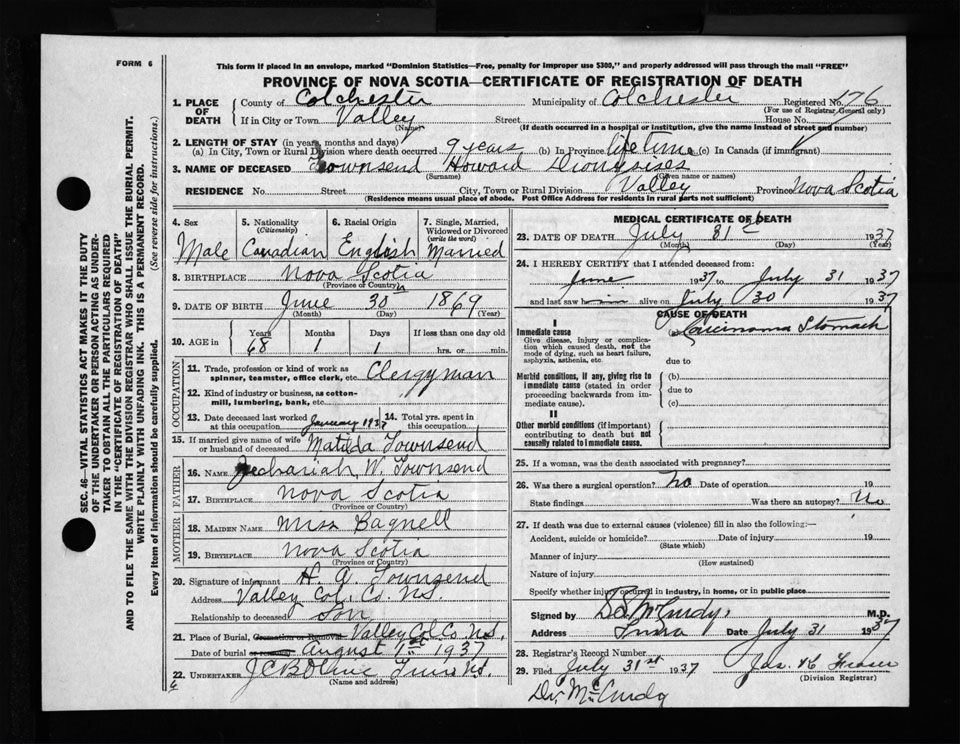 FORM 6
This form if placed in an envelope, marked "Dominion Statistics—Free, penalty for improper use $300," and properly addressed will pass through the mail "FREE"
PROVINCE OF NOVA SCOTIA—CERTIFICATE OF REGISTRATION OF DEATH
SEC. 46—VITAL STATISTICS ACT MAKES IT THE DUTY
OF THE UNDERTAKER OR PERSON ACTING AS UNDER-
TAKER TO OBTAIN ALL THE PARTICULARS REQUIRED
IN THE "CERTIFICATE OF REGISTRATION OF DEATH"
AND TO FILE THE SAME WITH THE DIVISION REGISTRAR WHO SHALL ISSUE THE BURIAL PERMIT.
WRITE PLAINLY WITH UNFADING INK. THIS IS A PERMANENT RECORD.
Every item of information should be carefully supplied. (See reverse side for instructions.)
1. PLACE OF DEATH County of Colchester Municipality of Colchester Registered No. 176
(For use of Registrar General only)
If in City or Town Valley Street House No.
(Name) (If death occurred in a hospital or institution, give the name instead of street and number)
2. LENGTH OF STAY (in years, months and days)
(a) In City, Town or Rural Division where death occurred 9 years (b) In Province lifetime (c) In Canada (if immigrant)
3. NAME OF DECEASED Townsend Howard Dionysises
(Surname) (Given name or names)
RESIDENCE No. Street City, Town or Rural Division Valley Province Nova Scotia
(Residence means usual place of abode. Post Office Address for residents in rural parts not sufficient)
4. Sex 5. Nationality (Citizenship) 6. Racial Origin 7. Single, Married, Widowed or Divorced (write the word)
Male Canadian English Married
8. BIRTHPLACE Nova Scotia
(Province or Country)
9. DATE OF BIRTH June 30th 1869
(Month) (Day) (Year)
10. AGE in Years Months Days If less than one day old
68 1 1 hrs. or min.
OCCUPATION
11. Trade, profession or kind of work as spinner, teamster, office clerk, etc. Clergyman
12. Kind of industry or business, as cotton-mill, lumbering, bank, etc.
13. Date deceased last worked at this occupation January 1937 14. Total yrs. spent in this occupation
15. If married give name of wife or husband of deceased Matilda Townsend
FATHER
16. NAME W. Townsend
17. BIRTHPLACE Nova Scotia
(Province or Country)
MOTHER
18. MAIDEN NAME Miss Bagnell
19. BIRTHPLACE Nova Scotia
(Province or Country)
20. Signature of informant H. A. Townsend
Address Valley Col. Co. N.S.
Relationship to deceased Son
21. Place of Burial, Cremation or Removal Valley Col. Co. N.S.
Date of burial or removal August 1st 1937
22. UNDERTAKER Truro N.S.
(Name and address)
MEDICAL CERTIFICATE OF DEATH
23. DATE OF DEATH July 31st 1937
(Month) (Day) (Year)
24. I HEREBY CERTIFY that I attended deceased from:
June 1937 to July 31 1937
and last saw him alive on July 30 1937
CAUSE OF DEATH
I
Immediate cause (a) Carcinoma Stomach
Give disease, injury or complication which caused death, not the mode of dying, such as heart failure, asphyxia, asthenia, etc. due to
Morbid conditions, if any, giving rise to immediate cause (stated in order proceeding backwards from immediate cause). (b) due to (c)
II
Other morbid conditions (if important) contributing to death but not causally related to immediate cause.
25. If a woman, was the death associated with pregnancy?
26. Was there a surgical operation? No Date of operation 19
State findings Was there an autopsy? No
27. If death was due to external causes (violence) fill in also the following:—
Accident, suicide or homicide? Date of injury 19
(State which)
Manner of injury
(How sustained)
Nature of injury
Specify whether injury occurred in industry, in home, or in public place
Signed by McCurdy M.D.
Address Truro Date July 31 1937
28. Registrar's Record Number
29. Filed July 31st 1937 Jas. K. Fraser
(Division Registrar)
Dr. McCurdy